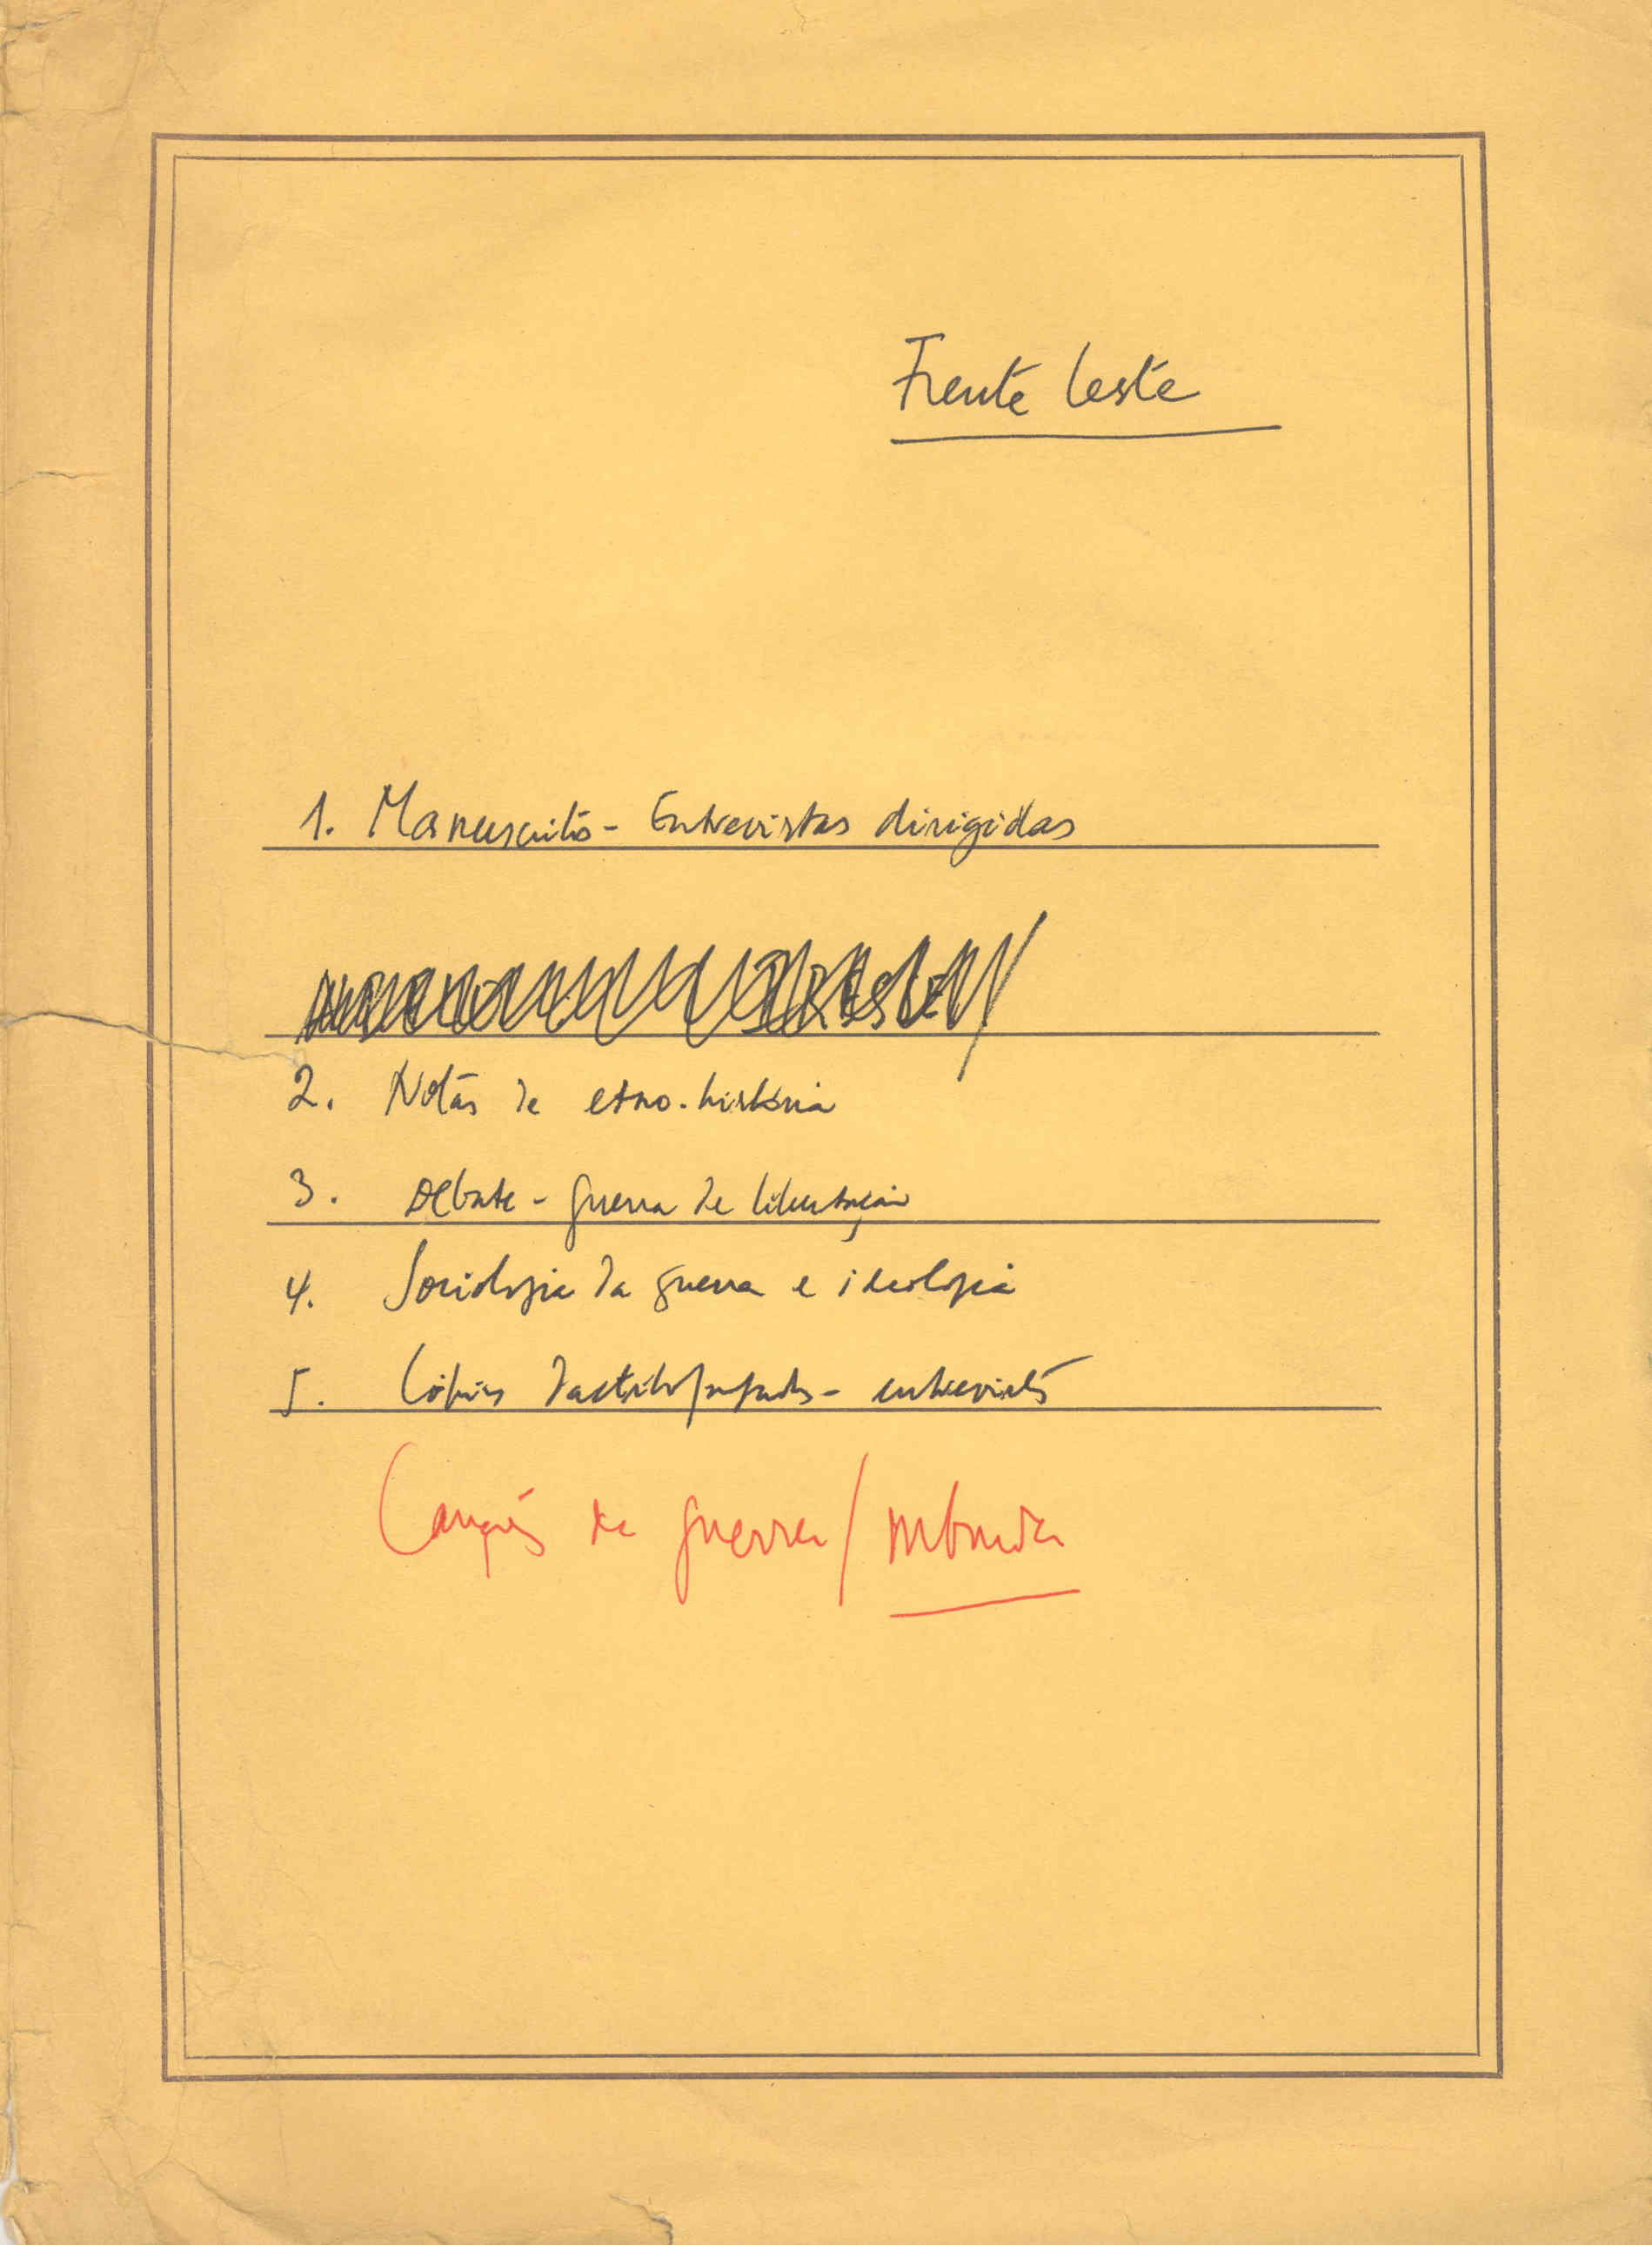 Frente Leste
1. Manuscritos - Entrevistas dirigidas
2. Notas de etno-história
3. Debate - guerra de libertação
4. Sociologia da guerra e ideologia
5. Cópias dactilografadas - entrevistas
Canções de guerra /